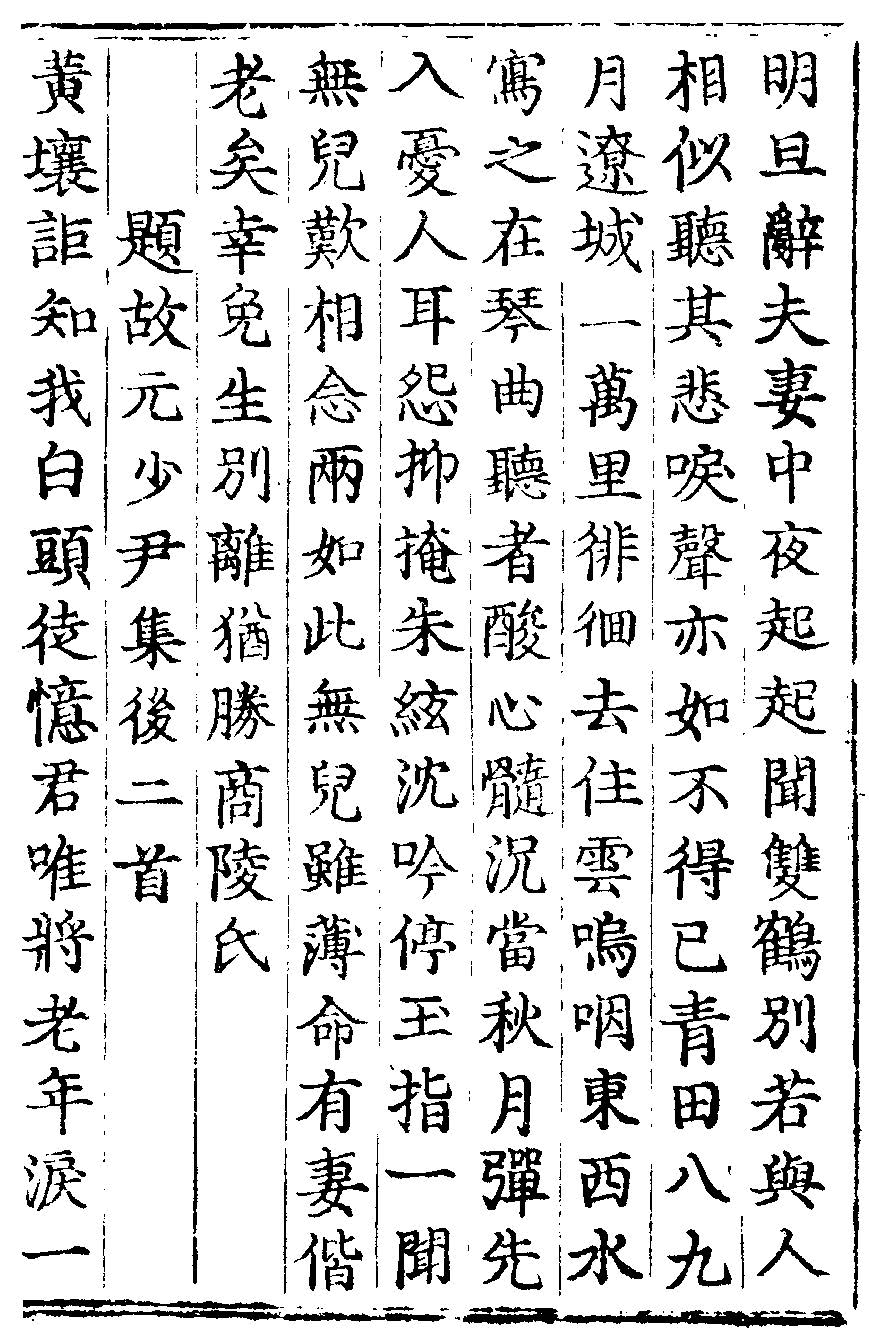 明旦辭夫妻中夜起起聞雙鶴別若與人
相似聽其悲唳聲亦如不得已青田八九
月遼城一萬里徘徊去住雲嗚咽東西水
寫之在琴曲聽者酸心髓況當秋月彈先
入憂人耳怨抑掩朱絃沈吟停玉指一聞
無兒歎相念兩如此無兒雖薄命有妻偕
老矣幸免生別離猶勝商陵氏
題故元少尹集後二首
黃壤詎知我白頭徒憶君唯將老年淚一